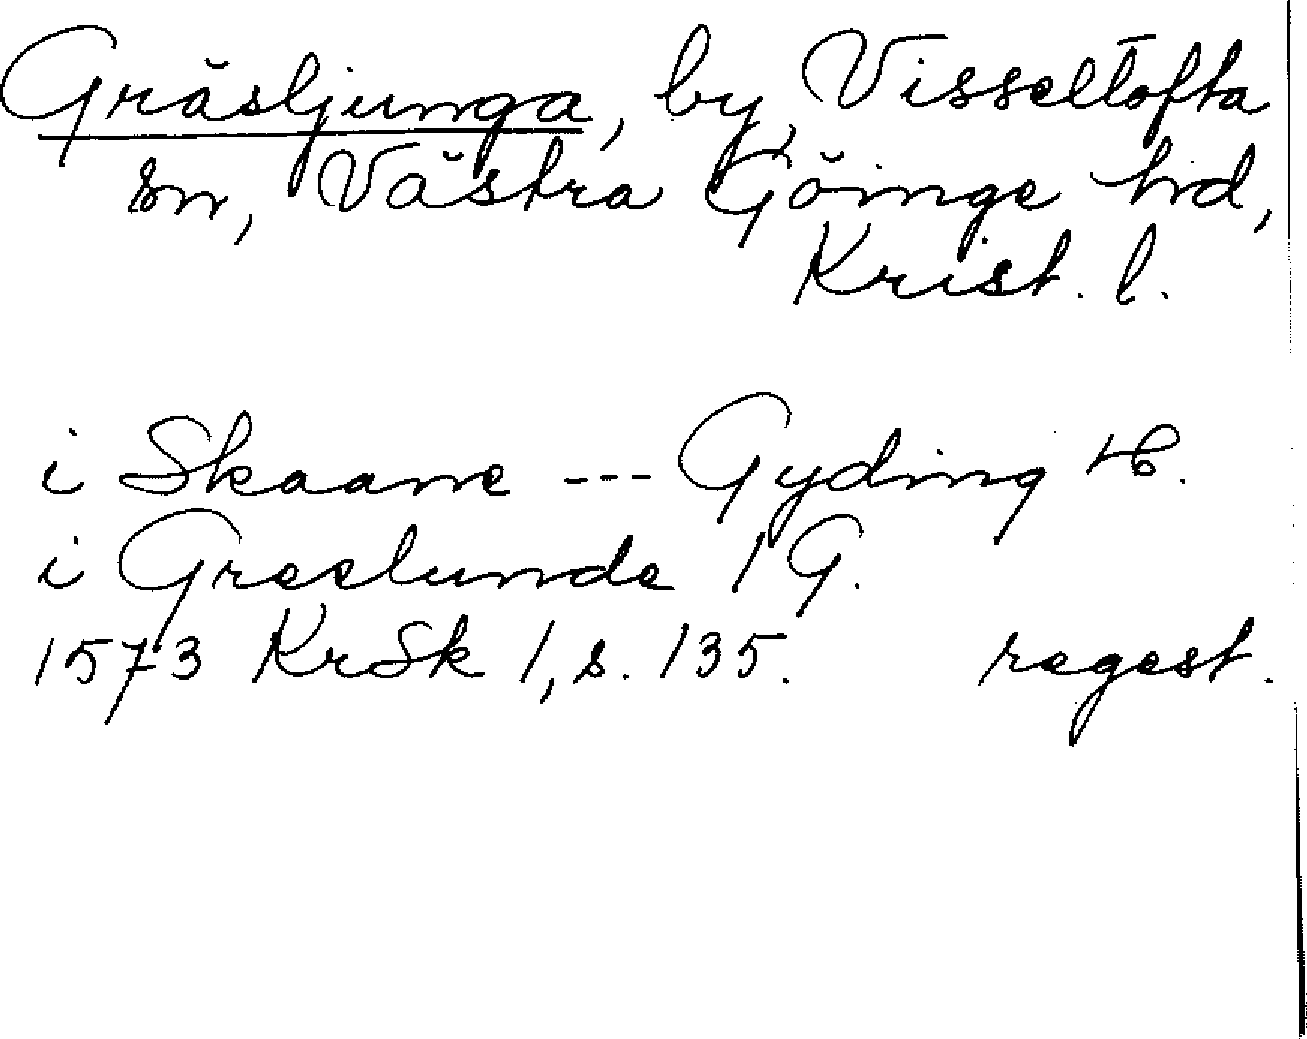 Gräsljunga, by, Visseltofta
sn, Västra Göinge hd,
Krist. l.
i Skaane --- Gyding H.
i Greslunde 1 G.
1573 KrSk 1, s. 135. regest.